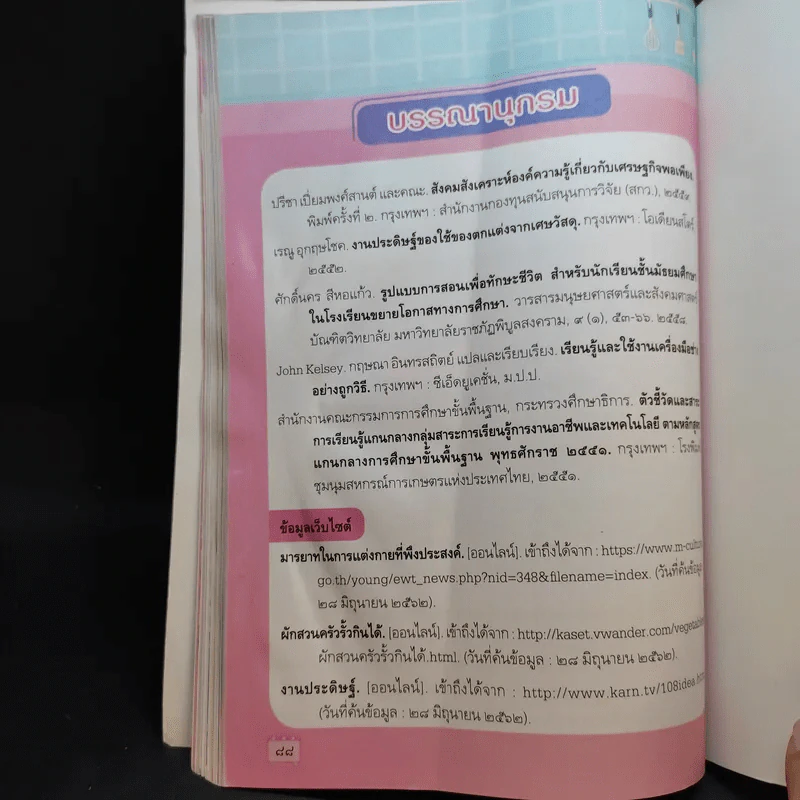 บรรณานุกรม
ปรีชา เปี่ยมพงศ์สานต์ และคณะ. สังคมสังเคราะห์องค์ความรู้เกี่ยวกับเศรษฐกิจพอเพียง.
พิมพ์ครั้งที่ ๒. กรุงเทพฯ : สำนักงานกองทุนสนับสนุนการวิจัย (สกว.), ๒๕๔๙
เรณู อุกฤษโชค. งานประดิษฐ์ของใช้ของตกแต่งจากเศษวัสดุ. กรุงเทพฯ : โอเดียนสโตร์
๒๕๕๒.
ศักดิ์นคร สีหอแก้ว. รูปแบบการสอนเพื่อทักษะชีวิต สำหรับนักเรียนชั้นมัธยมศึกษา
ในโรงเรียนขยายโอกาสทางการศึกษา. วารสารมนุษยศาสตร์และสังคมศาสตร์
บัณฑิตวิทยาลัย มหาวิทยาลัยราชภัฏพิบูลสงคราม, ๙ (๑), ๕๓-๖๖. ๒๕๕๘.
John Kelsey. กฤษณา อินทรสถิตย์ แปลและเรียบเรียง. เรียนรู้และใช้งานเครื่องมือช่าง
อย่างถูกวิธี. กรุงเทพฯ : ซีเอ็ดยูเคชั่น, ม.ป.ป.
สำนักงานคณะกรรมการการศึกษาขั้นพื้นฐาน, กระทรวงศึกษาธิการ. ตัวชี้วัดและสาระ
การเรียนรู้แกนกลางกลุ่มสาระการเรียนรู้การงานอาชีพและเทคโนโลยี ตามหลักสูตร
แกนกลางการศึกษาขั้นพื้นฐาน พุทธศักราช ๒๕๕๑. กรุงเทพฯ : โรงพิมพ์
ชุมนุมสหกรณ์การเกษตรแห่งประเทศไทย, ๒๕๕๑.
ข้อมูลเว็บไซต์
มารยาทในการแต่งกายที่พึงประสงค์. [ออนไลน์]. เข้าถึงได้จาก : https://www.m-cultur
go.th/young/ewt_news.php?nid=348&filename=index. (วันที่ค้นข้อมูล
๒๘ มิถุนายน ๒๕๖๒).
ผักสวนครัวรั้วกินได้. [ออนไลน์]. เข้าถึงได้จาก : http://kaset.vwander.com/vegetable
ผักสวนครัวรั้วกินได้.html. (วันที่ค้นข้อมูล : ๒๘ มิถุนายน ๒๕๖๒).
งานประดิษฐ์. [ออนไลน์]. เข้าถึงได้จาก : http://www.karn.tv/108idea.htm
(วันที่ค้นข้อมูล : ๒๘ มิถุนายน ๒๕๖๒).
๘๘